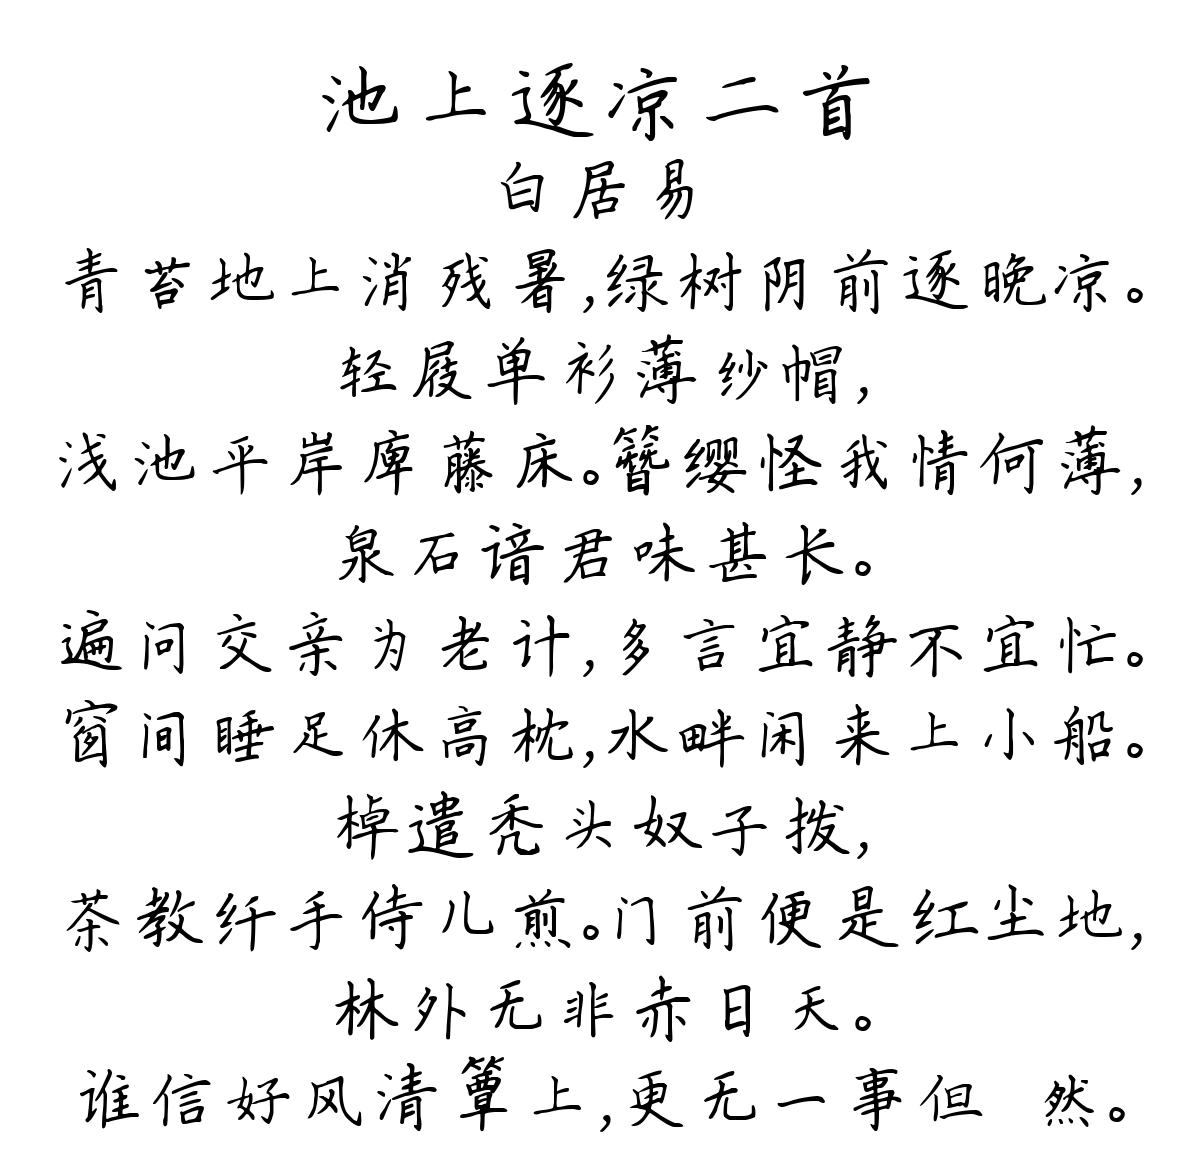 池上逐凉二首
白居易
青苔地上消残暑,绿树阴前逐晚凉。
轻屐单衫薄纱帽,
浅池平岸庳藤床。簪缨怪我情何薄,
泉石谙君味甚长。
遍问交亲为老计,多言宜静不宜忙。
窗间睡足休高枕,水畔闲来上小船。
棹遣秃头奴子拨,
茶教纤手侍儿煎。门前便是红尘地,
林外无非赤日天。
谁信好风清簟上,更无一事但 然。